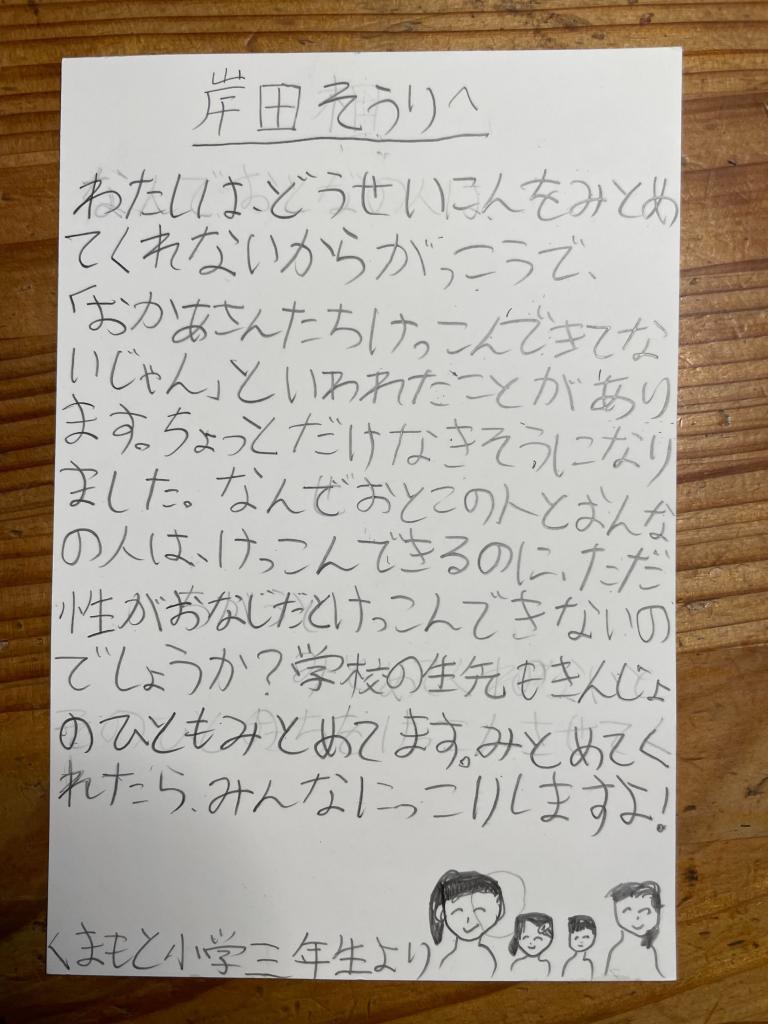 岸田そうりへ
わたしは、どうせいこんをみとめ
てくれないからがっこうで、
「おかあさんたちけっこんできてな
いじゃん」といわれたことがあり
ます。ちょっとだけなきそうになり
ました。なんでおとこの人とおんな
の人は、けっこんできるのに、ただ
性がおなじだとけっこんできないの
でしょうか?学校の生先もきんじょ
のひともみとめてます。みとめてく
れたら、みんなにっこりしますよ!
くまもと小学三年生より